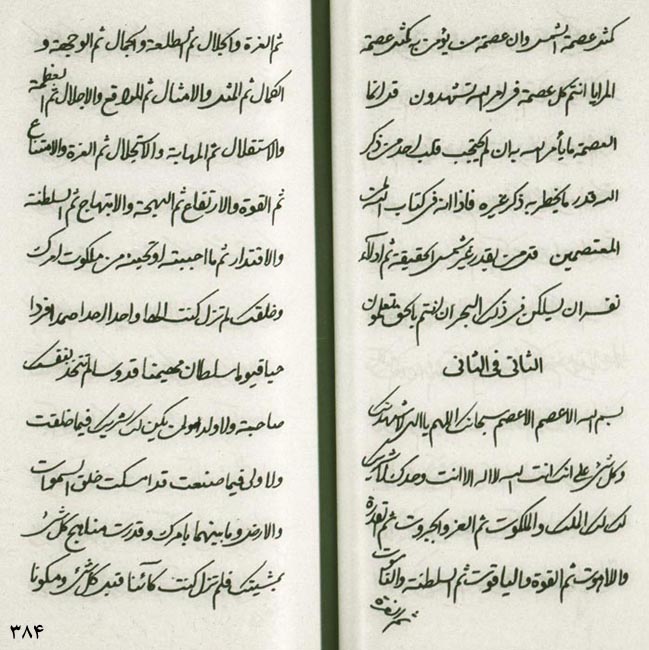 كمثل عصمة الشمس وان عصمة من يؤمن به كمثل عصمة
المرايا انتم كل عصمة فى امر الله تشهدون قد انما
العصمة ما يأمر الله به ان لم يحتجب قلب احد من ذكر
الله قدر ما يخطر به ذكر غيره فاذا انه فى كتاب الله لمن
المعتصمين قل من يقدر غير شمس الحقيقة ثم ادلاء
نفسه ان يسلكن فى ذلك البحر ان انتم بالحق تعلمون
الثانى فى الثانى
بسم الله الاعصم الاعصم سبحانك اللهم يا الهى لاشهدنك
وكل شئ على انك انت الله لا اله الا انت وحدك لا شريك
لك لك الملك والملكوت ثم العز والجبروت ثم القدرة
واللاهوت ثم القوة والياقوت ثم السلطنة والناسوت
ثم العزة
ثم العزة والجلال ثم الطلعة والجمال ثم الوجهة و
الكمال ثم المثل والامثال ثم المواقع والاجلال ثم العظمة
والاستقلال ثم المهابة والاكتجلال ثم العزة والامتناع
ثم القوة والارتفاع ثم البهجة والابتهاج ثم السلطنة
والاقتدار ثم ما احببته او تحبنه من ملكوت امرك
وخلقك لم تزل كنت الها واحدا احدا صمدا فردا
حيا قيوما سلطانا مهيمنا قدوسا لم تتخذ لنفسك
صاحبة ولا ولدا ولم يكن لك شريك فيما خلقت
ولا ولى فيما صنعت قد امسكت خلق السموات
والارض وما بينهما بامرك وقدرت مناهج كل شئ
بمشيتك فلم تزل كنت كائنا قبل كل شئ ومكونا
٣٨۴